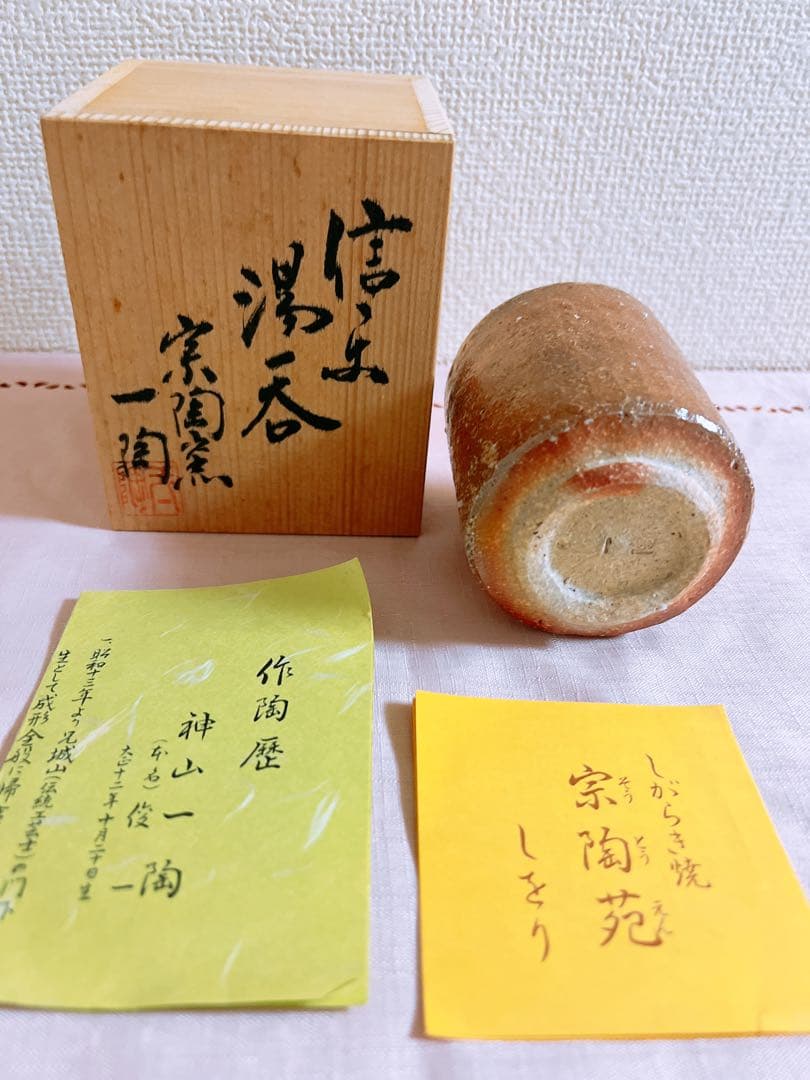 信楽
湯呑
宗陶窯
一陶
作陶歴
神山一陶
(本名)俊一
大正十二年十月二十日生
一、昭和十三年より兄城山(伝統工芸士)の門下
生として成形全般に
しがらき焼
宗陶苑
そうとうえん
しをり